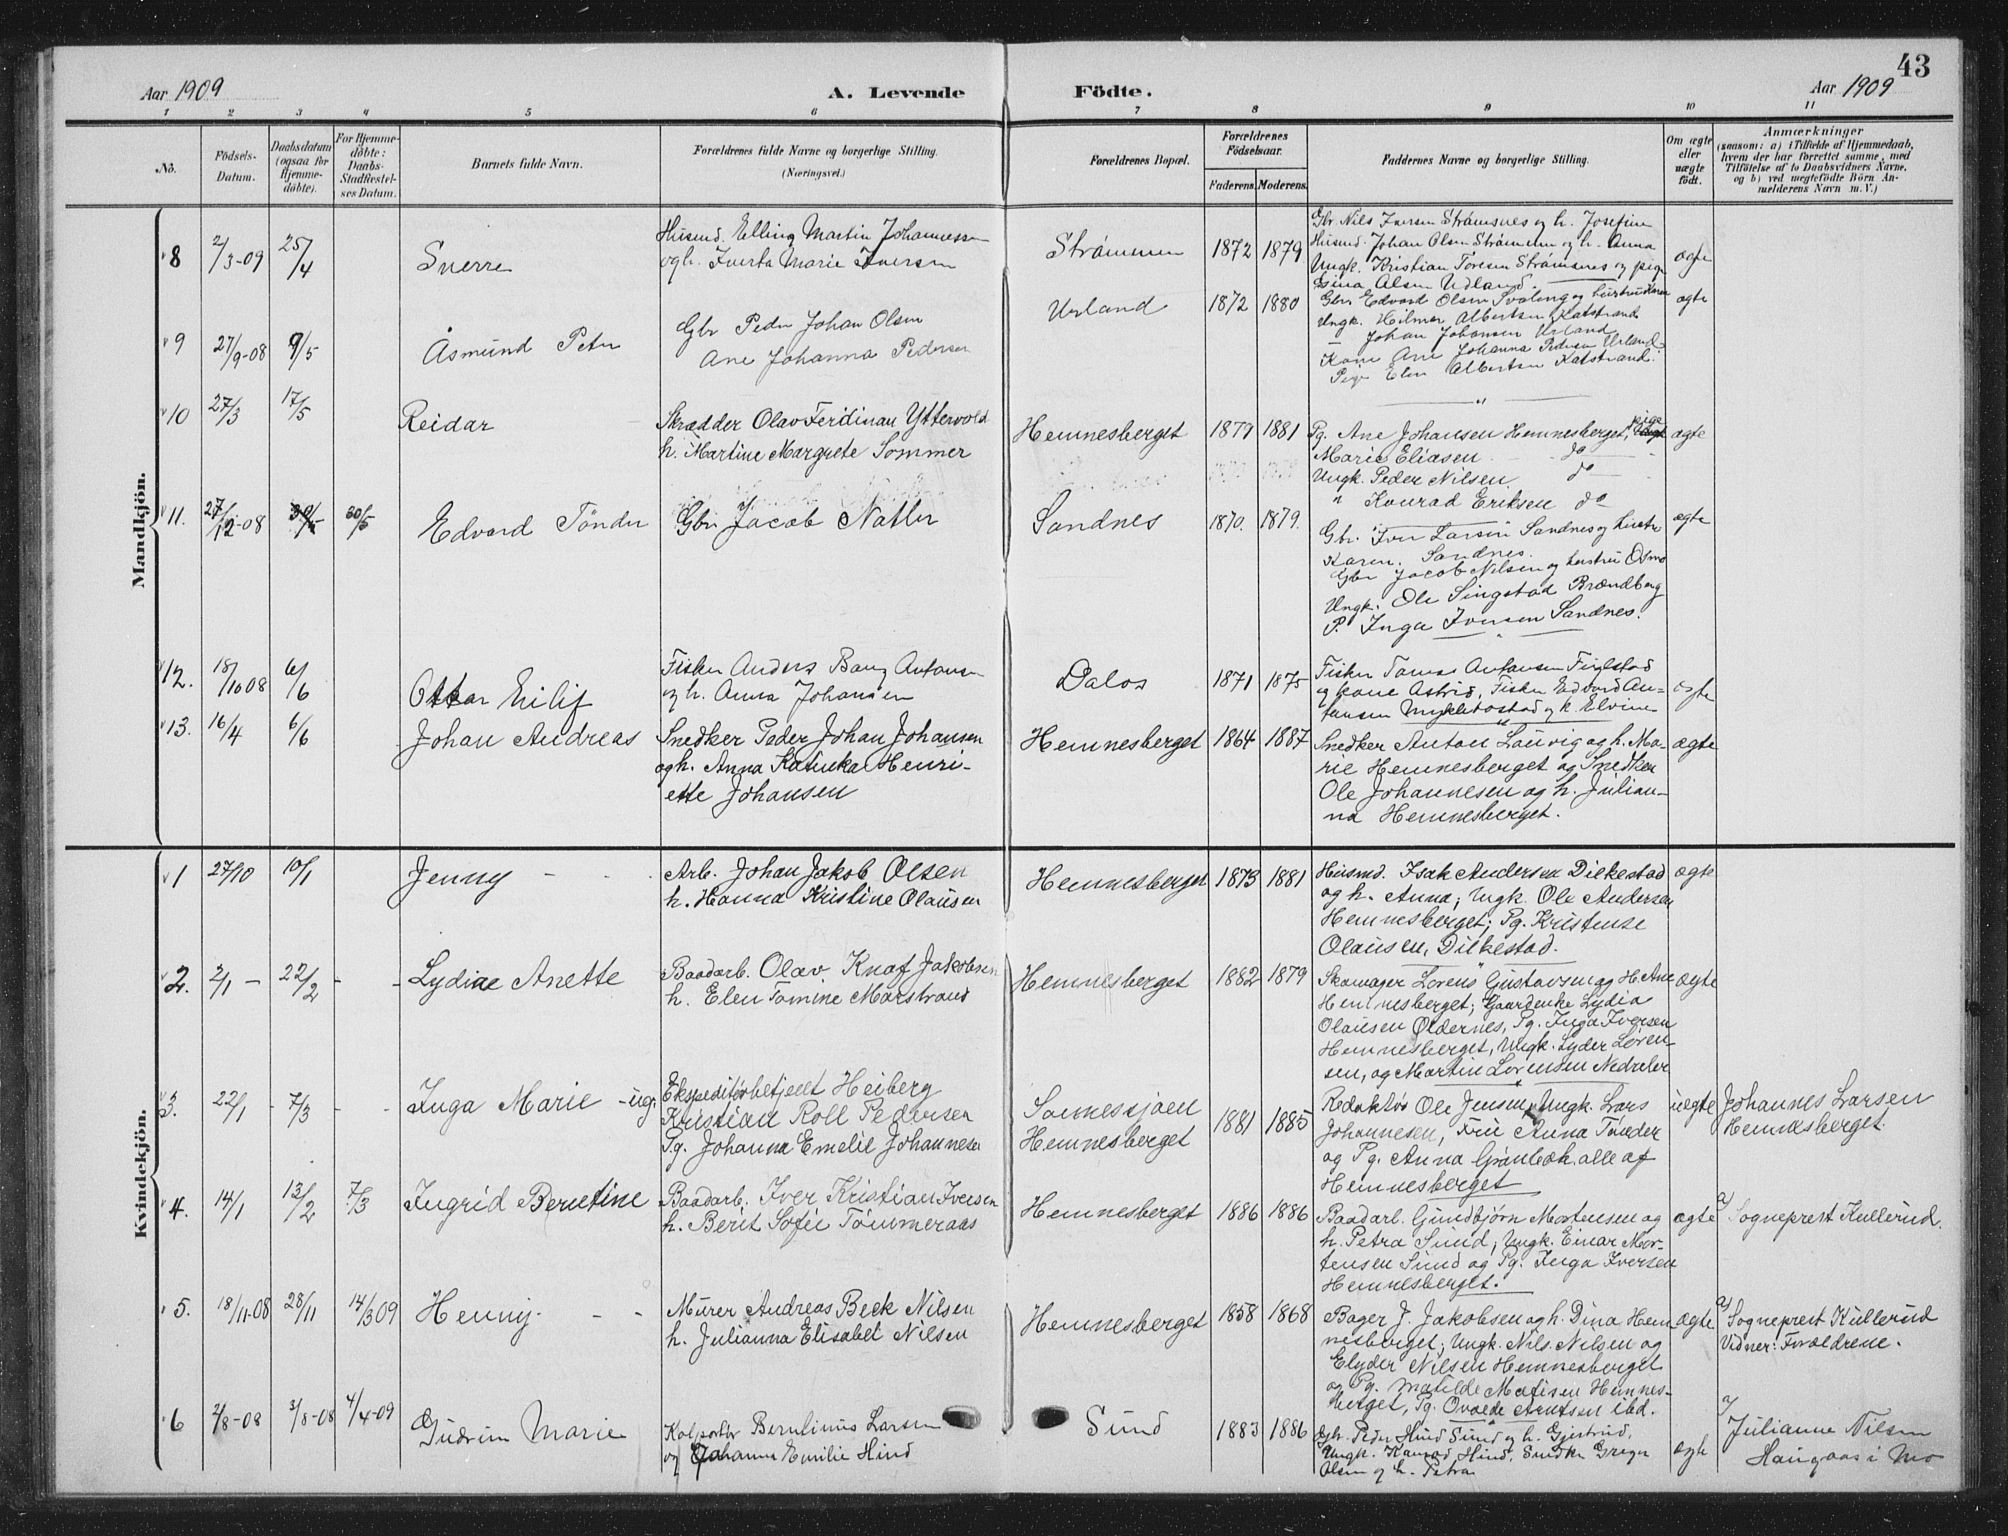 43
Aar 1909
A. Levende
Födte.
Aar 1909
1 2 3 4 5 6 7 8 9 10 11
No.
Födsels-
Datum.
Daabsdatum
(ogsaa for
Hjemme-
döbte).
For Hjemme-
döbte:
Daabs-
Stadfæstel-
ses Datum.
Barnets fulde Navn.
Forældrenes fulde Navne og borgerlige Stilling.
(Næringsvei.)
Forældrenes Bopæl.
Forældrenes
Födselsaar.
Faderens. Moderens.
Faddernes Navne og borgerlige Stilling.
Om ægte
eller
uægte
födt.
Anmærkninger
(saasom: a) i Tilfælde af Hjemmedaab,
hvem der har forrettet samme, med
Tilföielse af to Daabsvidners Navne,
og b) ved uægtefödte Börn An-
melderens Navn m. V.)
Mandkjön.
8 2/3-09 25/4 Sverre
Husmd. Elling Martin Johannessen
og h. Iverta Marie Iversen
Strømmen 1872 1879
Gbr Nils Iversen Strømsnes og h. Josefine
Husmd. Johan Olsen Strømmen og h. Anna
Ungk. Kristian Toresen Strømsnes og pige
Olsen Udland.
ægte
9 27/9-08 9/5 Åsmund Peter
Gbr Peder Johan Olsen
Ane Johanna Pedersen
Urland 1872 1880
Gbr Edvard Olsen og hustru
Ungk. Hilmer Albertsen Katstrand
Johan Johansen Urland
Kone Ane Johanna Pedersen Urland
Pige Elen Albertsen Katstrand.
ægte
10 27/3 17/5 Reidar
Skrædder Olav Ferdinan Yttervold
h. Martine Margrete Sommer
Hemnesberget 1879 1881
Pg. Ane Johansen Hemnesberget, pige
Marie Eliasen do
Ungk. Peder Nilsen do
" Konrad Eriksen do
ægte
11. 27/12-08 30/5 30/5 Edvard Tönder
Gbr Jacob Natler
Sandnes 1870. 1879.
Gbr. Iver Larsen Sandnes og hustru
Karen Sandnes.
Gbr Jacob Nilsen og hustru
Ungk. Ole Singstad Brændberg
P. Inga Iversen Sandnes.
ægte
12. 18/10 08 6/6 Ottar Eilif
Fisker Anders Bang Antonsen
og h. Anna Johansen
Dalos 1871 1875
Fisker Tomas Antonsen
og kone Astrid, Fisker Edvard An-
tonsen Myklebostad og k. Elvine
ægte
13. 16/4 6/6 Johan Andreas
Snedker Peder Johan Johansen
og h. Anna Katinka Henri-
ette Johansen
Hemnesberget 1864 1887
Snedker Anton Lauvig og h. Ma-
rie Hemnesberget og Snedker
Ole Johannesen og h. Julian-
na Hemnesberget.
ægte
Kvindekjön.
1 27/10 10/1 Jenny
Arb. Johan Jakob Olsen
h. Hanna Kristine Olausen
Hemnesberget 1873 1881
Husmd. Isak Andersen Dilkestad
og h. Anna; Ungk. Ole Andersen
Hemnesberget; Pg. Kristense
Olausen, Dilkestad.
ægte
2. 2/1 - 22/2 - - Lydiae Anette
Baadarb. Olav Knaf Jakobsen
h. Elen Tomine Marstrand
Hemnesberget 1882 1879
Skomager Lorens Gustavsen og H. Ane
Hemnesberget; Gaardenke Lydia
Olausen Oldernes, Pg. Inga Iversen
Hemnesberget, Ungk. Lyder Loren-
sen, og Martin Lorensen Nedreler
ægte
3. 22/1 - 7/3 - - Inga Marie - ueg.
Ekspeditörbetjent Heiberg
Kristian Roll Pedersen
Pg. Johanna Emelie Johannesen
Sannessjøen
Hemnesberget
1881 1885
Redaktör Ole Jensen, Ungk. Lars
Johannesen, Frü Anna Tønder
og Pg. Anna Grönbæk, alle af
Hemnesberget
uægte Johannes Larsen
Hemnesberget.
4. 14/1 13/2 7/3 Ingrid Berntine
Baadarb. Iver Kristian Iversen
h. Berit Sofie Tömmeraas
Hemnesberget 1886 1886
Baadarb. Gundbjørn Mortensen og
h. Petra Sund; Ungk. Einar Mor-
tensen Sund og Pg. Inga Iversen
Hemnesberget.
ægte a) Sogneprest Kullerud.
5. 18/11-08 28/11 14/3 09 Henny - -
Murer Andreas Beck Nilsen
h. Julianna Elisabet Nilsen
Hemnesberget 1858 1868
Bager J. Jakobsen og h. Dina Hem
nesberget; Ungk. Nils Nilsen og
Elyder Nilsen Hemnesberget
og Pg. Matilde Matisen Hemnes-
berget, Pg. Ovaede Arntsen ibd.
ægte a) Sogneprest Kullerud
Vidner: Forældrene.
6 2/8-08 3/8-08 4/4-09 Gudrun Marie
Kolportör Berntinus Larsen
og Johanna Emilie Hind
Sund 1883 1886
Gbr. Peder Hind Sund og h. Gjertrud,
Ungk. Konrad Hind, Snedker Greger
Olsen og h. Petra
ægte
a) Julianne Nilsen
Haugaas i Mo